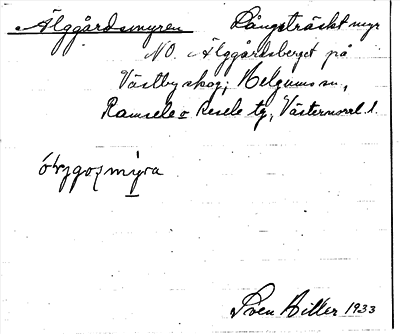 Älggårdsmyren Långsträckt myr
NO. Älggårdsberget på
Västby skog, Helgums sn,
Ramsele o Resele tg, Västernorrl. l.
mýra
Sven Hiller 1933